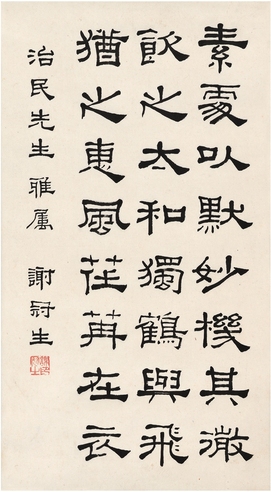 素處以默妙機其微
飲之太和獨鶴與飛
猶之惠風荏苒在衣
治民先生雅属 謝冠生